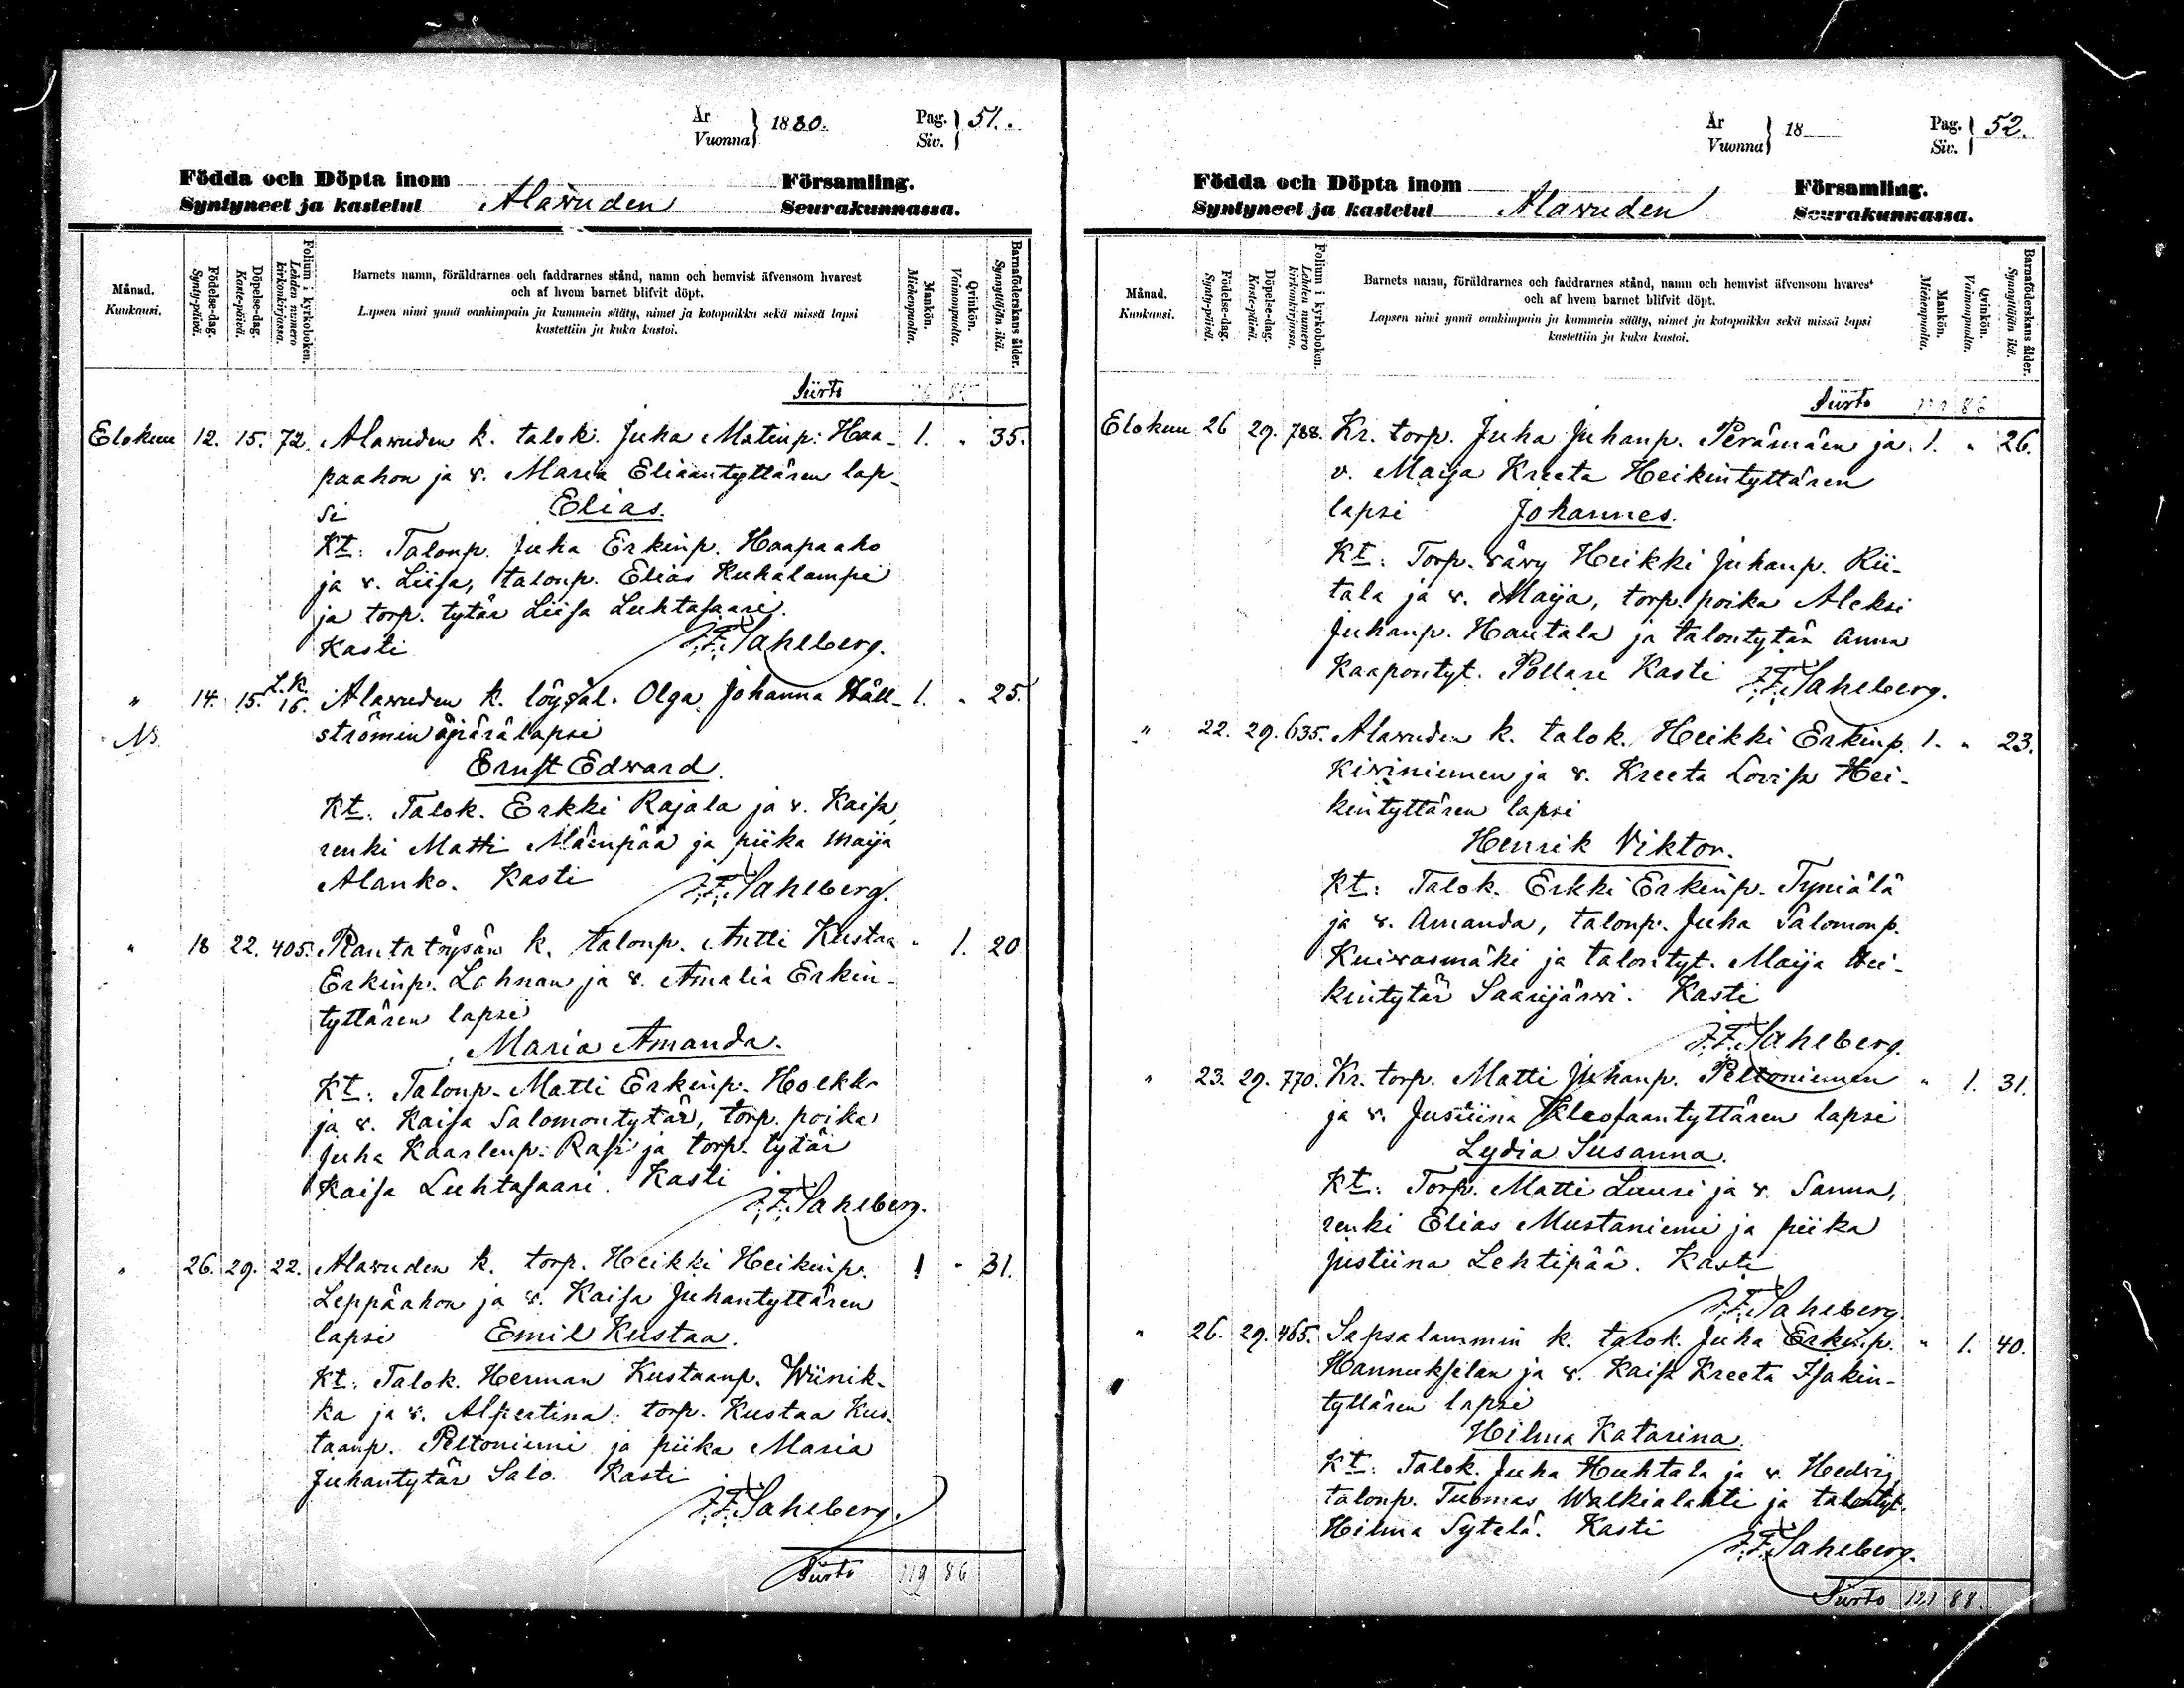 År
Vuonna } 1880.
Pag.
Siv. } 51.
Födda och Döpta inom Församling.
Syntyneet ja kastetut Alawuden Seurakunnassa.
Månad.
Kuukausi.
Födelse-dag.
Synty-päivä.
Döpelse-dag.
Kaste-päivä.
Folium i kyrkoboken.
Lehden numero
kirkonkirjassa.
Barnets namn, föräldrarnes och faddrarnes stånd, namn och hemvist äfvensom hvarest
och af hvem barnet blifvit döpt.
Lapsen nimi ynnä vanhimpain ja kummein sääty, nimet ja kotopaikka sekä missä lapsi
kastettiin ja kuka kastoi.
Mankön.
Miehenpuolta.
Qvinkön.
Vaimonpuolta.
Barnaföderskans ålder.
Synnyttäjän ikä.
Siirto
Elokuu 12. 15. 72. Alawuden k. talok. Juha Matinp. Haa- 1. " 35.
paahon ja v. Maria Eliaantyttären lap-
si Elias.
Kt: Talonp. Juha Erkinp. Haapaaho
ja v. Liisa, talonp. Elias Kuhalampi
ja torp. tytär Liisa Luhtasaari.
Kasti J.F. Sahlberg.
" 14. 15. L.K. 16. Alawuden k. löysäl. Olga Johanna Häll- 1. " 25.
N3. strömin äpärälapsi
Ernst Edward.
Kt: Talok. Erkki Rajala ja v. Kaisa,
renki Matti Mäenpää ja piika Maija
Alanko. Kasti J.F. Sahlberg.
" 18 22. 405. Rantatöysän k. talonp. Antti Kustaa " 1. 20
Erkinp. Lahnan ja v. Amalia Erkin-
tyttären lapsi
Maria Amanda.
Kt: Talonp. Matti Erkinp. Holkko
ja v. Kaisa Salomontytär, torp. poika
Juha Kaarlenp. Rasi ja torp. tytär
Kaisa Luhtasaari. Kasti
J.F. Sahlberg.
" 26. 29. 22. Alawuden k. torp. Heikki Heikinp. 1 " 31.
Leppäahon ja v. Kaisa Juhantyttären
lapsi Emil Kustaa.
Kt: Talok. Herman Kustaanp. Wiinik-
ka ja v. Alpertina, torp. Kustaa Kus-
taanp. Peltoniemi ja piika Maria
Juhantytär Salo. Kasti
J.F. Sahlberg.
Siirto 119 86
År
Vuonna } 18
Pag.
Siv. } 52.
Födda och Döpta inom Församling.
Syntyneet ja kastetut Alawuden Seurakunnassa.
Månad.
Kuukausi.
Födelse-dag.
Synty-päivä.
Döpelse-dag.
Kaste-päivä.
Folium i kyrkoboken.
Lehden numero
kirkonkirjassa.
Barnets namn, föräldrarnes och faddrarnes stånd, namn och hemvist äfvensom hvarest
och af hvem barnet blifvit döpt.
Lapsen nimi ynnä vanhimpain ja kummein sääty, nimet ja kotopaikka sekä missä lapsi
kastettiin ja kuka kastoi.
Mankön.
Miehenpuolta.
Qvinkön.
Vaimonpuolta.
Barnaföderskans ålder.
Synnyttäjän ikä.
Siirto 119 86
Elokuu 26 29. 788. Kr. torp. Juha Juhanp. Perämäen ja 1. " 26.
v. Maija Kreeta Heikintyttären
lapsi Johannes.
Kt: Torp. vävy Heikki Juhanp. Rii-
tala ja v. Maija, torp. poika Aleksi
Juhanp. Hautala ja talontytär Anna
Kaapontyt. Pollari Kasti J.F. Sahlberg.
" 22. 29. 635. Alawuden k. talok. Heikki Erkinp. 1. " 23.
Kiviniemen ja v. Kreeta Lovisa Hei-
kintyttären lapsi
Henrik Viktor.
Kt: Talok. Erkki Erkinp. Typiälä
ja v. Amanda, talonp. Juha Salomonp.
Kuivasmäki ja talontyt. Maija Hei-
kintytär Saarijärvi. Kasti
J.F. Sahlberg.
" 23. 29. 770. Kr. torp. Matti Juhanp. Peltoniemen " 1. 31.
ja v. Justiina Kleofaantyttären lapsi
Lydia Susanna.
Kt: Torp. Matti Luuri ja v. Sanna,
renki Elias Mustaniemi ja piika
Justiina Lehtipää. Kasti
J.F. Sahlberg.
" 26. 29. 465. Sapsalammin k. talok. Juha Erkinp. " 1. 40.
Hannukselan ja v. Kaisa Kreeta Isakin-
tyttären lapsi
Hilma Katarina.
Kt: Talok. Juha Huhtala ja v. Hedvig,
talonp. Tuomas Walkialahti ja talontyt.
Hilma Sytelä. Kasti
J.F. Sahlberg.
Siirto 121 88.